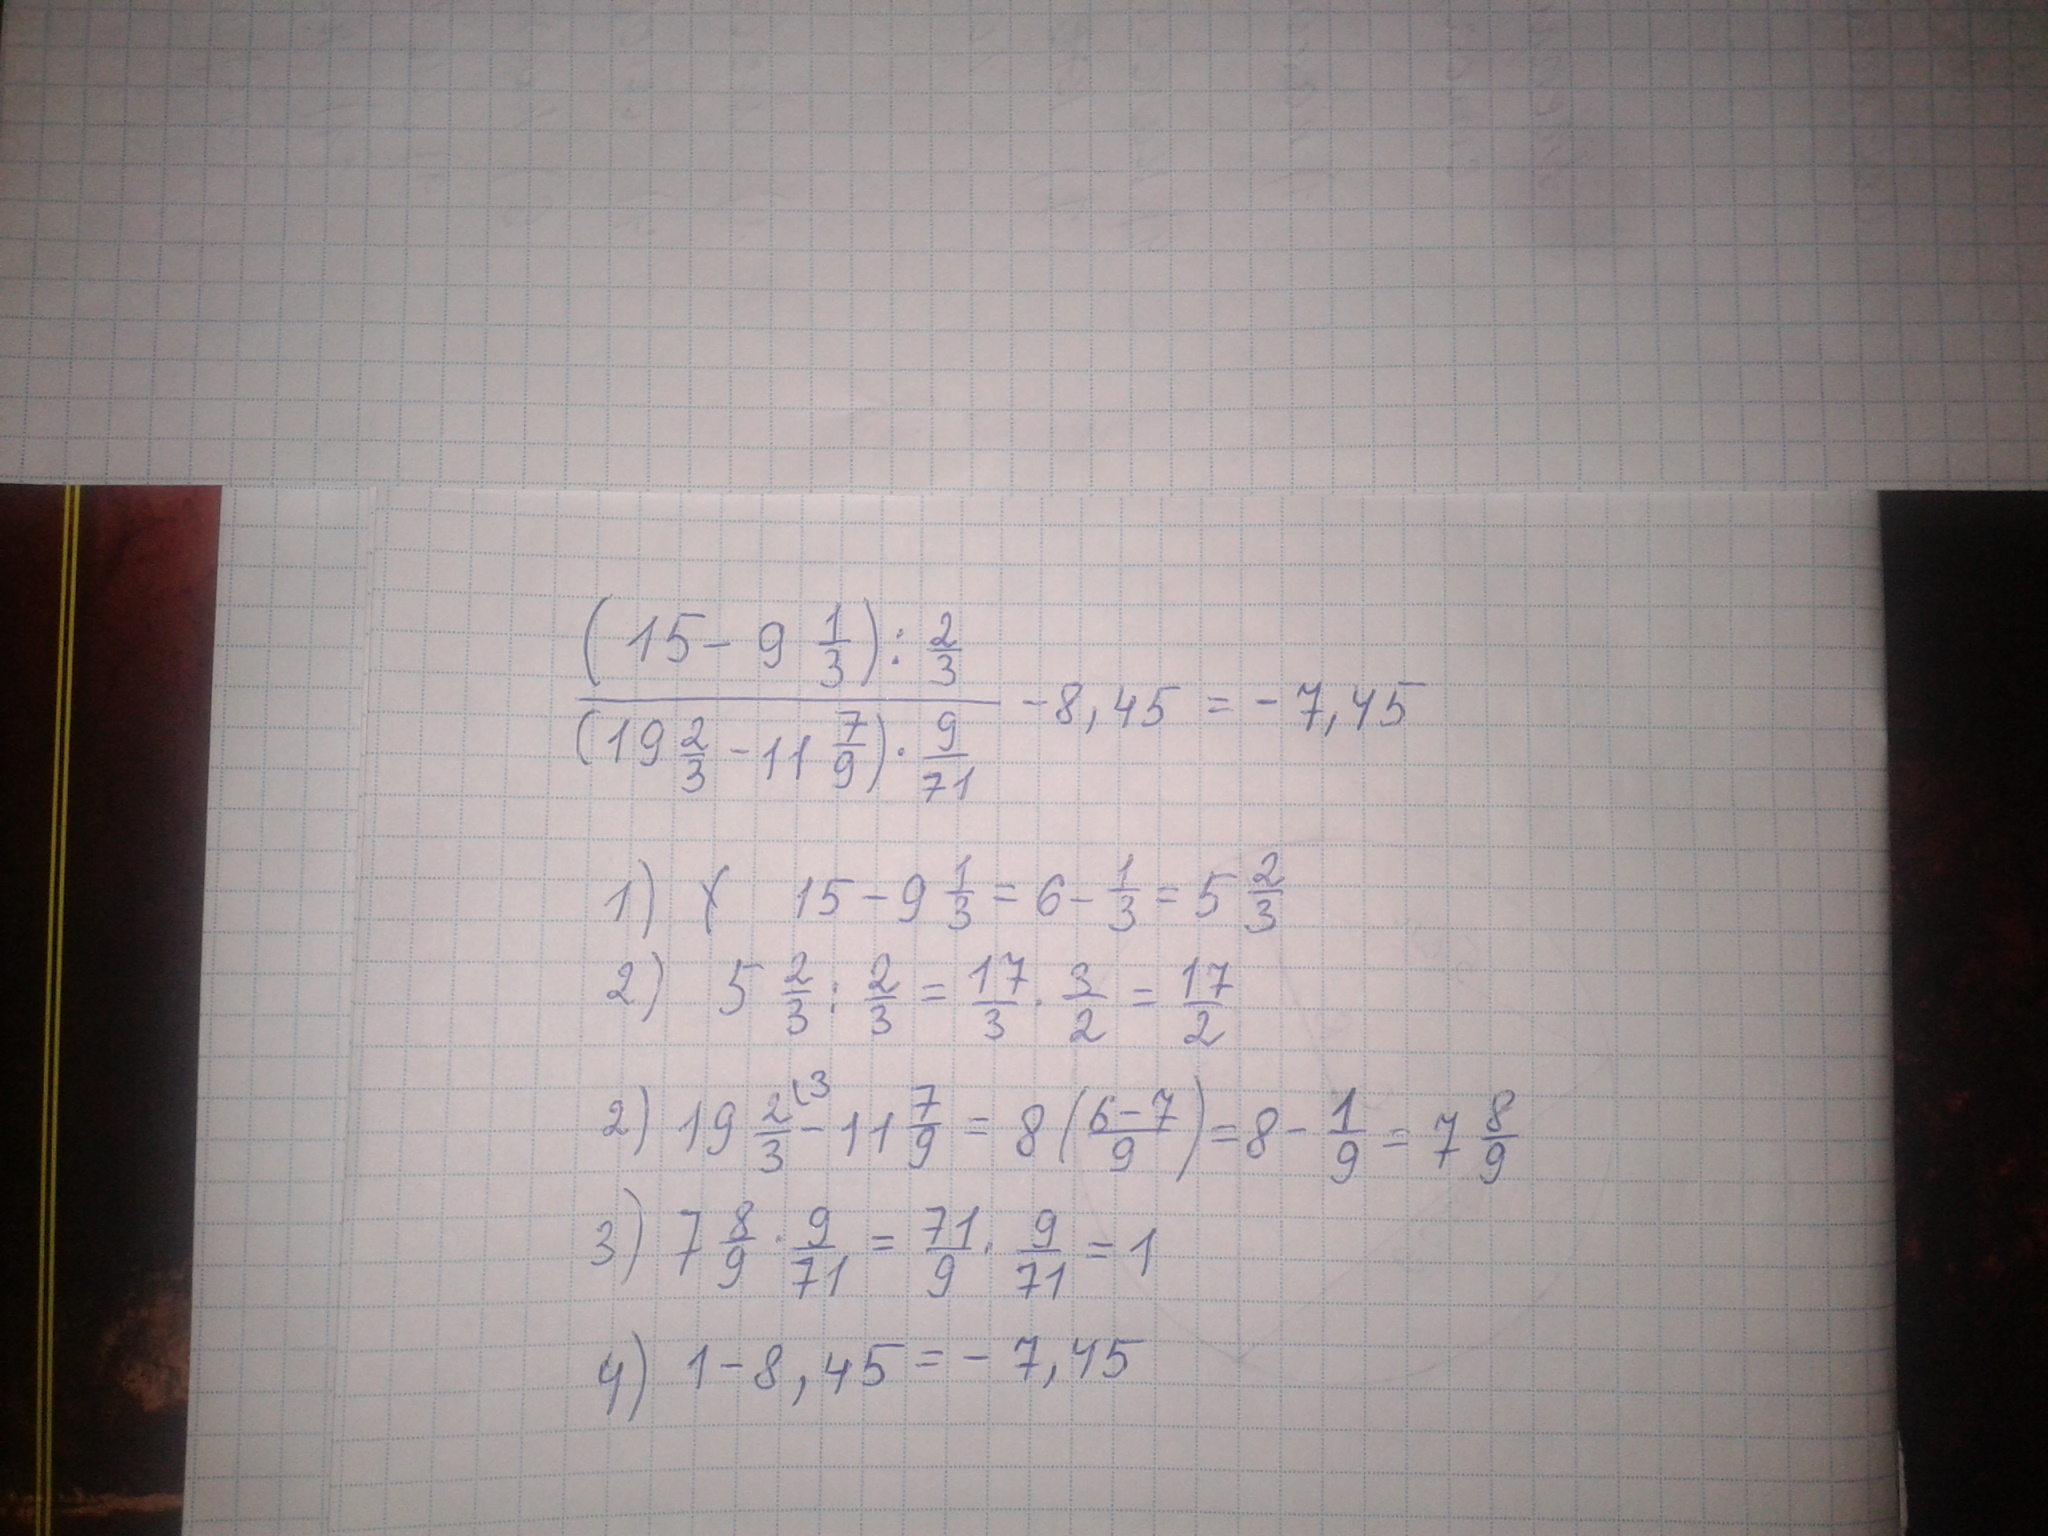 (15 - 9 1/3) : 2/3
(19 2/3 - 11 7/9) · 9/71 - 8,45 = - 7,45
1) 15 - 9 1/3 = 6 - 1/3 = 5 2/3
2) 5 2/3 : 2/3 = 17/3 · 3/2 = 17/2
2) 19 2/3 (3 - 11 7/9 = 8 (6-7/9) = 8 - 1/9 = 7 8/9
3) 7 8/9 · 9/71 = 71/9 · 9/71 = 1
4) 1 - 8,45 = - 7,45